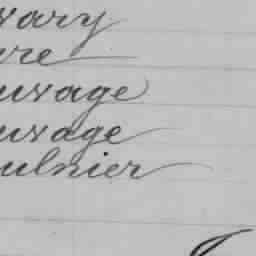 vary
vre
uvage
uvage
ulnier